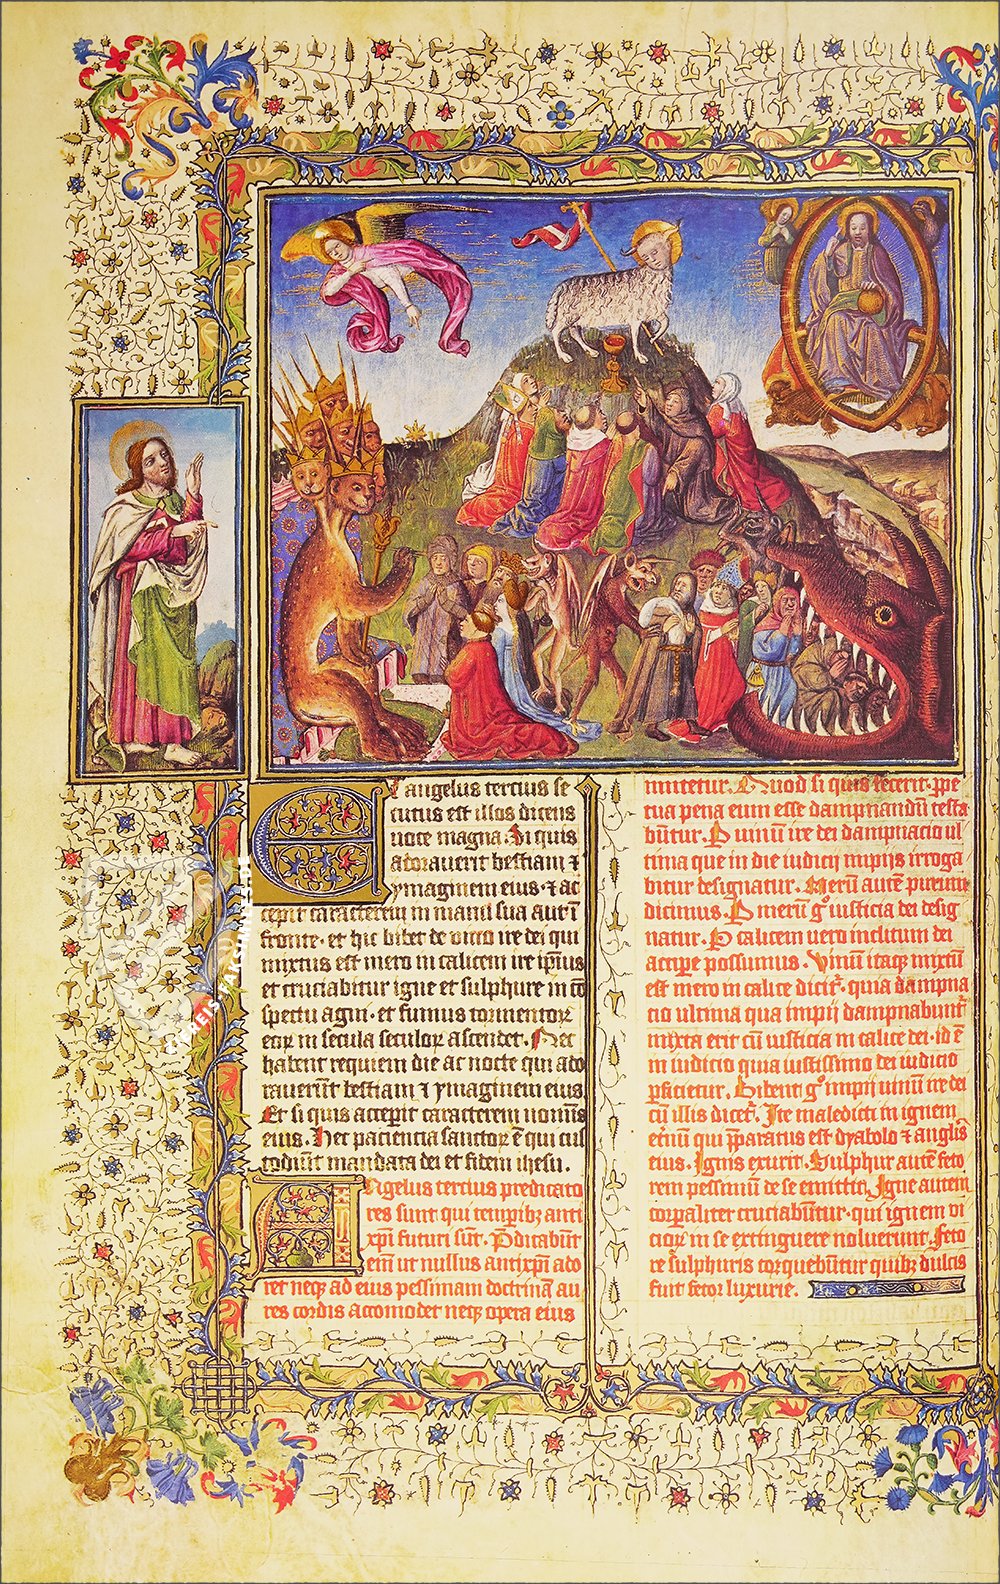 Et angelus tercius se
cutus est illos dicens
voce magna. Si quis
adoraverit bestiam ⁊
ymaginem eius · ⁊ ac
ceperit caracterem in manu sua aut ī
fronte · et hic bibet de vino ire dei qui
mixtus est mero in calicem ire ipsius
et cruciabitur igne et sulphure in cō
spectu agni · et fumus tormentoꝝ
eoꝝ in secula seculoꝝ ascendet. Nec
habent requiem die ac nocte qui ado
raverūt bestiam ⁊ ymaginem eius.
Et si quis acceperit caracterem nominis
eius. Hec paciencia sanctoꝝ ē qui cus
todiūt mandata dei et fidem ihesu.
Angelus tercius predicato
res sunt qui temporibꝫ anti
xp̄i futuri sūt. Pdicabūt
eīm ut nullus antixp̄i ado
ret neqꝫ ad eius pessimam doctrinā au
res cordis acomodet neqꝫ opera eius
mitetur. Quod si quis fecerit · ppe
tua pena eum esse dampnandū testa
būtur. P vinū ire dei dampnacio ul
tima que in die iudicij impijs irroga
bitur designatur. Merū autē purum
dicimus. P merū gͦ iusticia dei desig
natur. P calicem vero inclitum dei
accipe possumus. Vinū itaqꝫ mixtū
est mero in calice dicitꝰ. quia dampna
cio ultima qua impij dampnabuntꝰ
mixta erit cū iusticia in calice dei · id ē
in iudicio quia iustissimo dei iudicio
pficietur. Bibent gͦ impij vinū ire dei
cū illis dicetꝰ. Ite maledicti in ignem
eternū qui pparatus est dyabolo ⁊ anglis
eius. Ignis exurit. Sulphur autē feto
rem pessimū de se emittit. Igne autem
corporaliter cruciabūtur · qui ignem vi
cioꝝ in se extinguere noluerunt. Feto
re sulphuris torquebūtur quibꝫ dulcis
fuit fetor luxurie.